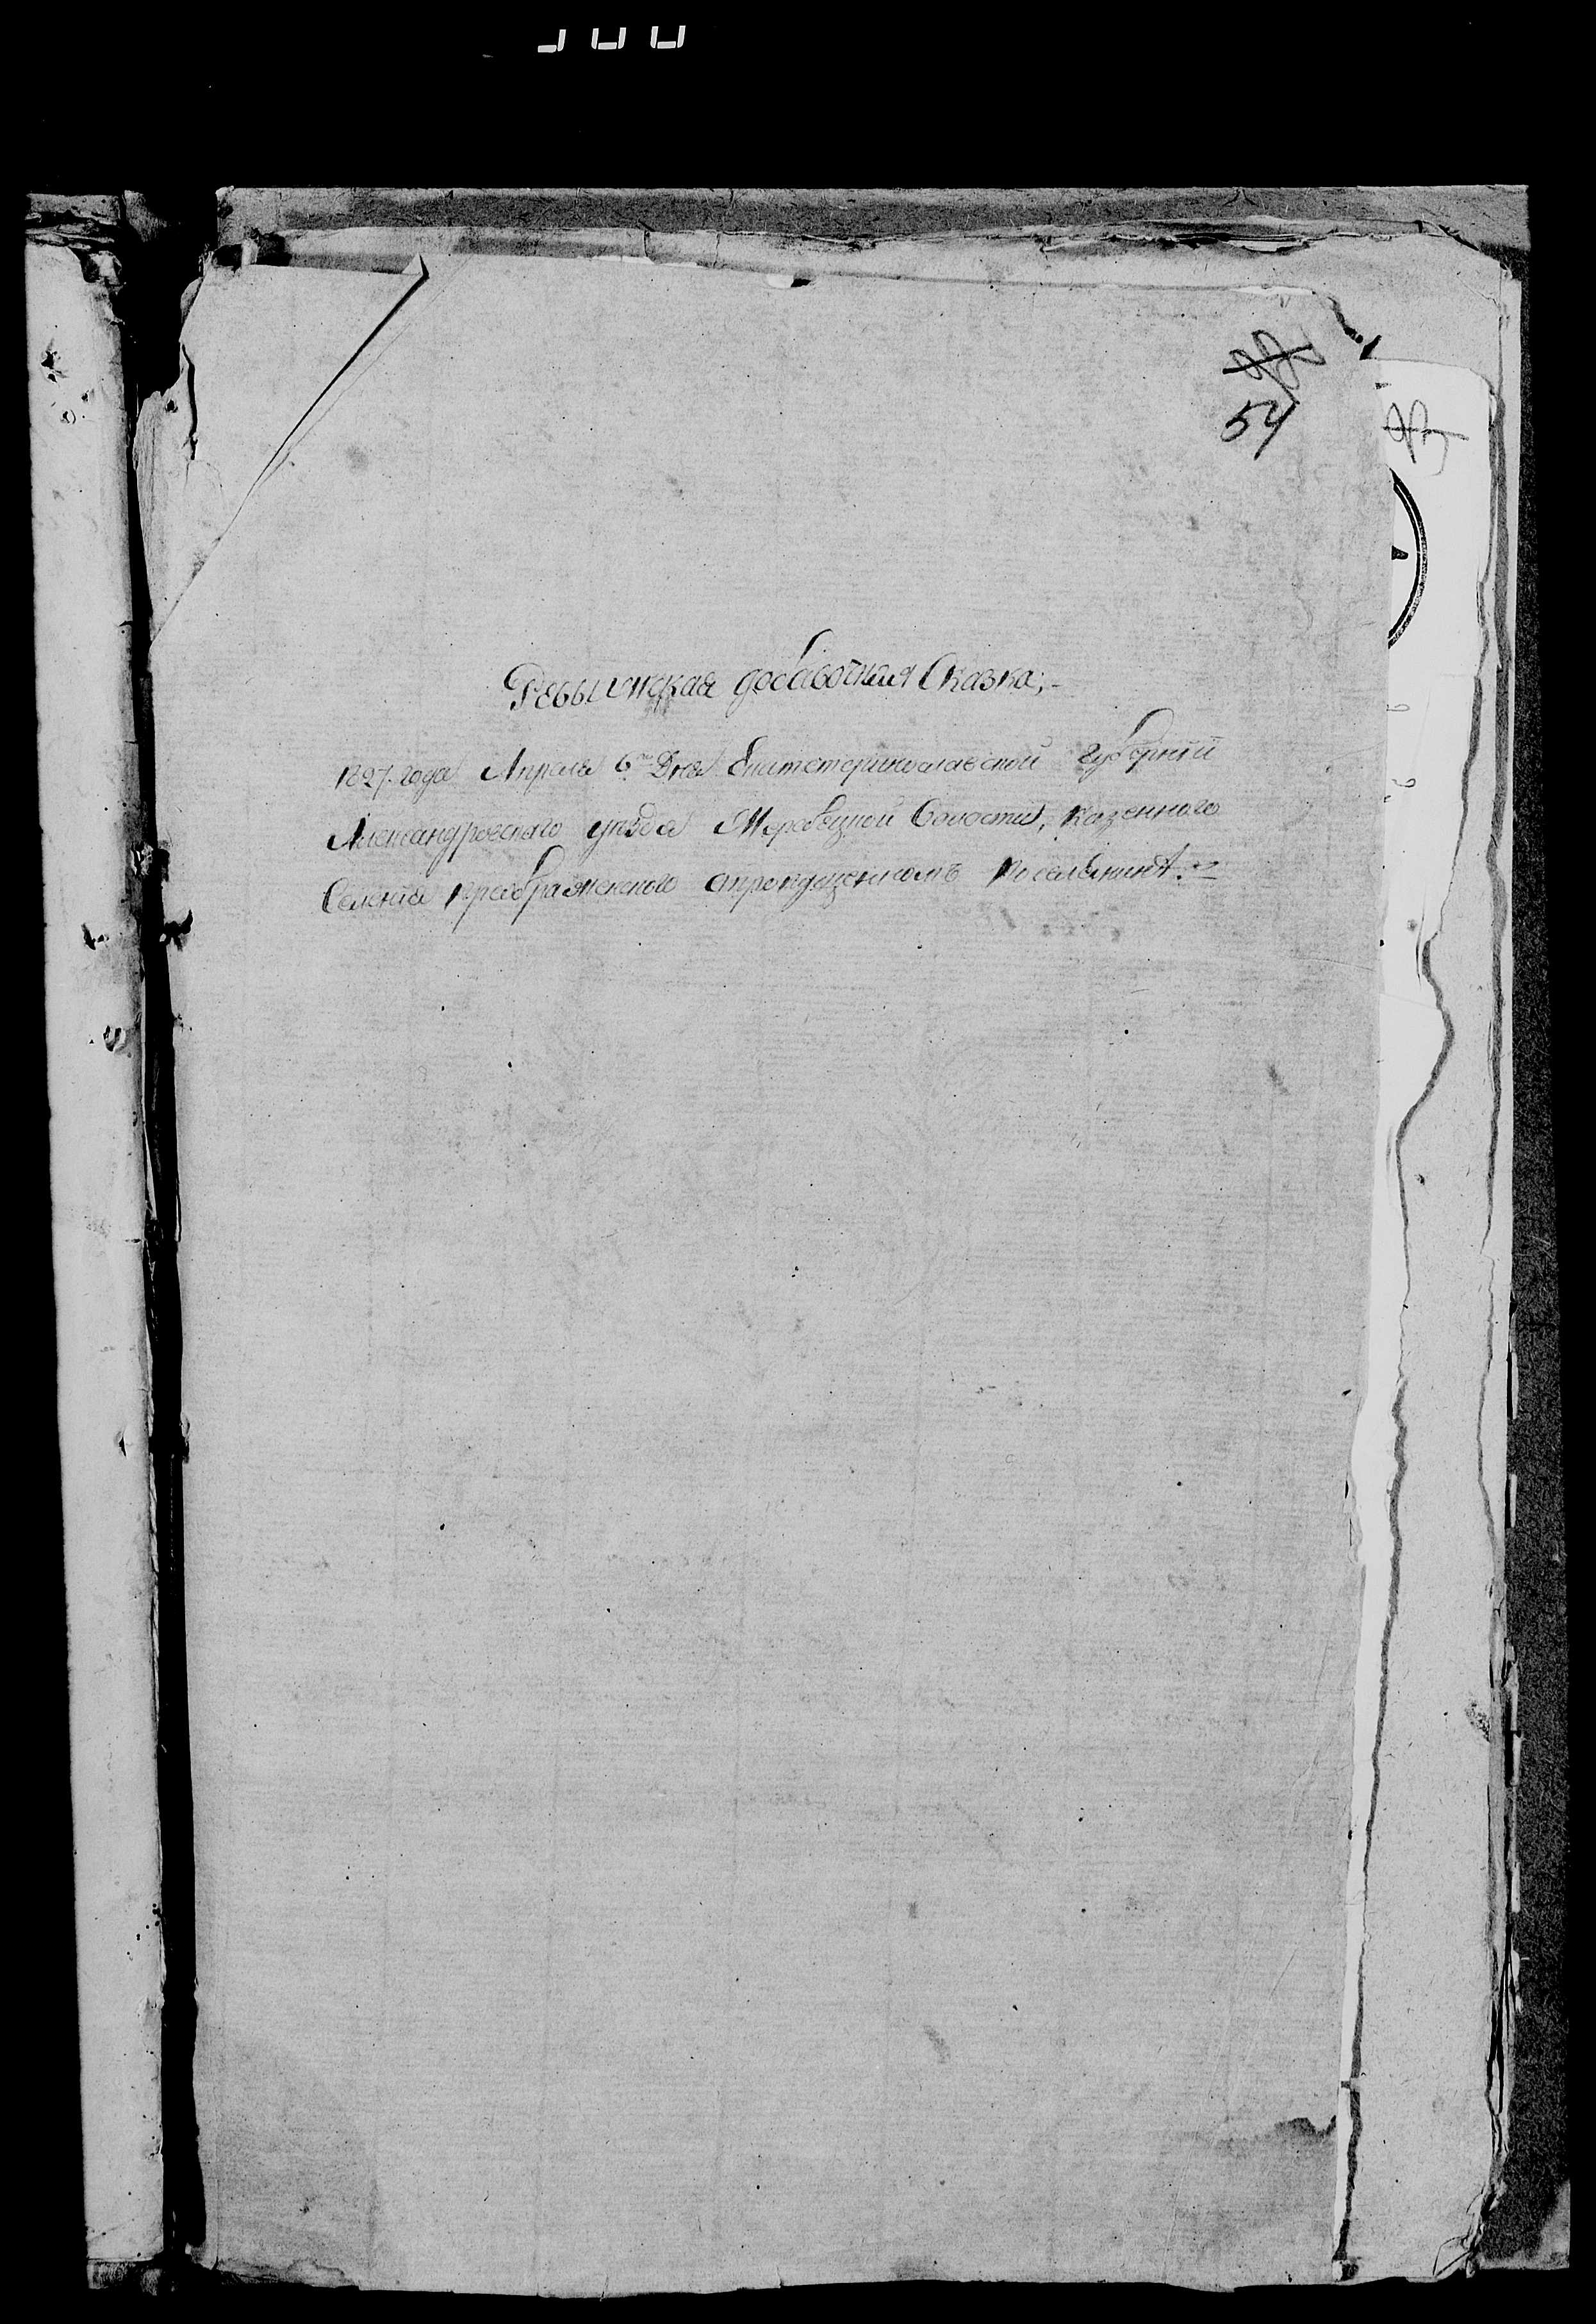 54
Ревижская добавочная Сказка;-
1827. года Апреля 6го Дня Екатетеринославской Губернии
Александровского уезда Жеребецкой Волости, Казенного
Селения преображенского опропущенномъ поселянине.